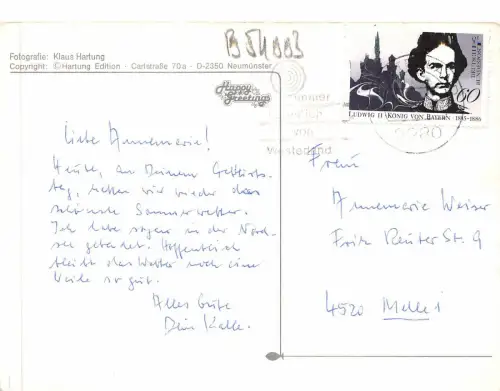 B54003
Fotografie: Klaus Hartung
Copyright: ©Hartung Edition · Carlstraße 70a · D-2350 Neumünster
Happy
Greetings
LUDWIG II · KÖNIG VON BAYERN 1845-1886
80
DEUTSCHE BUNDESPOST
von
Westerland
2280
Liebe Annemarie!
Heute, an Deinem Geburts-
tag, hatten wir wieder das
schönste Sommerwetter.
Ich habe sogar in der Nord-
see gebadet. Hoffentlich
bleibt das Wetter noch eine
Weile so gut.
Alles Gute
Dein Kalle.
Frau
Annemarie Weiser
Fritz Reuter St. 9
4520 Melle 1